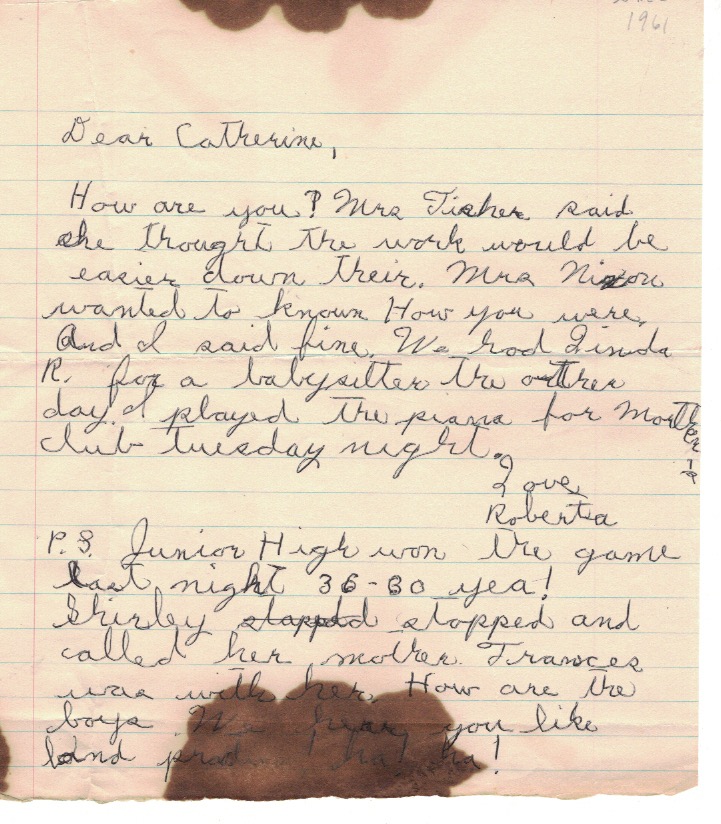 1961
Dear Catherine,
How are you? Mrs Fisher said
she thought the work would be
easier down their. Mrs Nixon
wanted to known How you were,
And I said fine. We had Linda
R. for a babysitter the other
day. I played the piana for Mother
club tuesday night.
Love
Roberta
P.S. Junior High won the game
last night 36-30 yea!
Shirley stappd stopped and
called her mother. Frances
was with her. How are the
boys We hear you like
band ha ha!